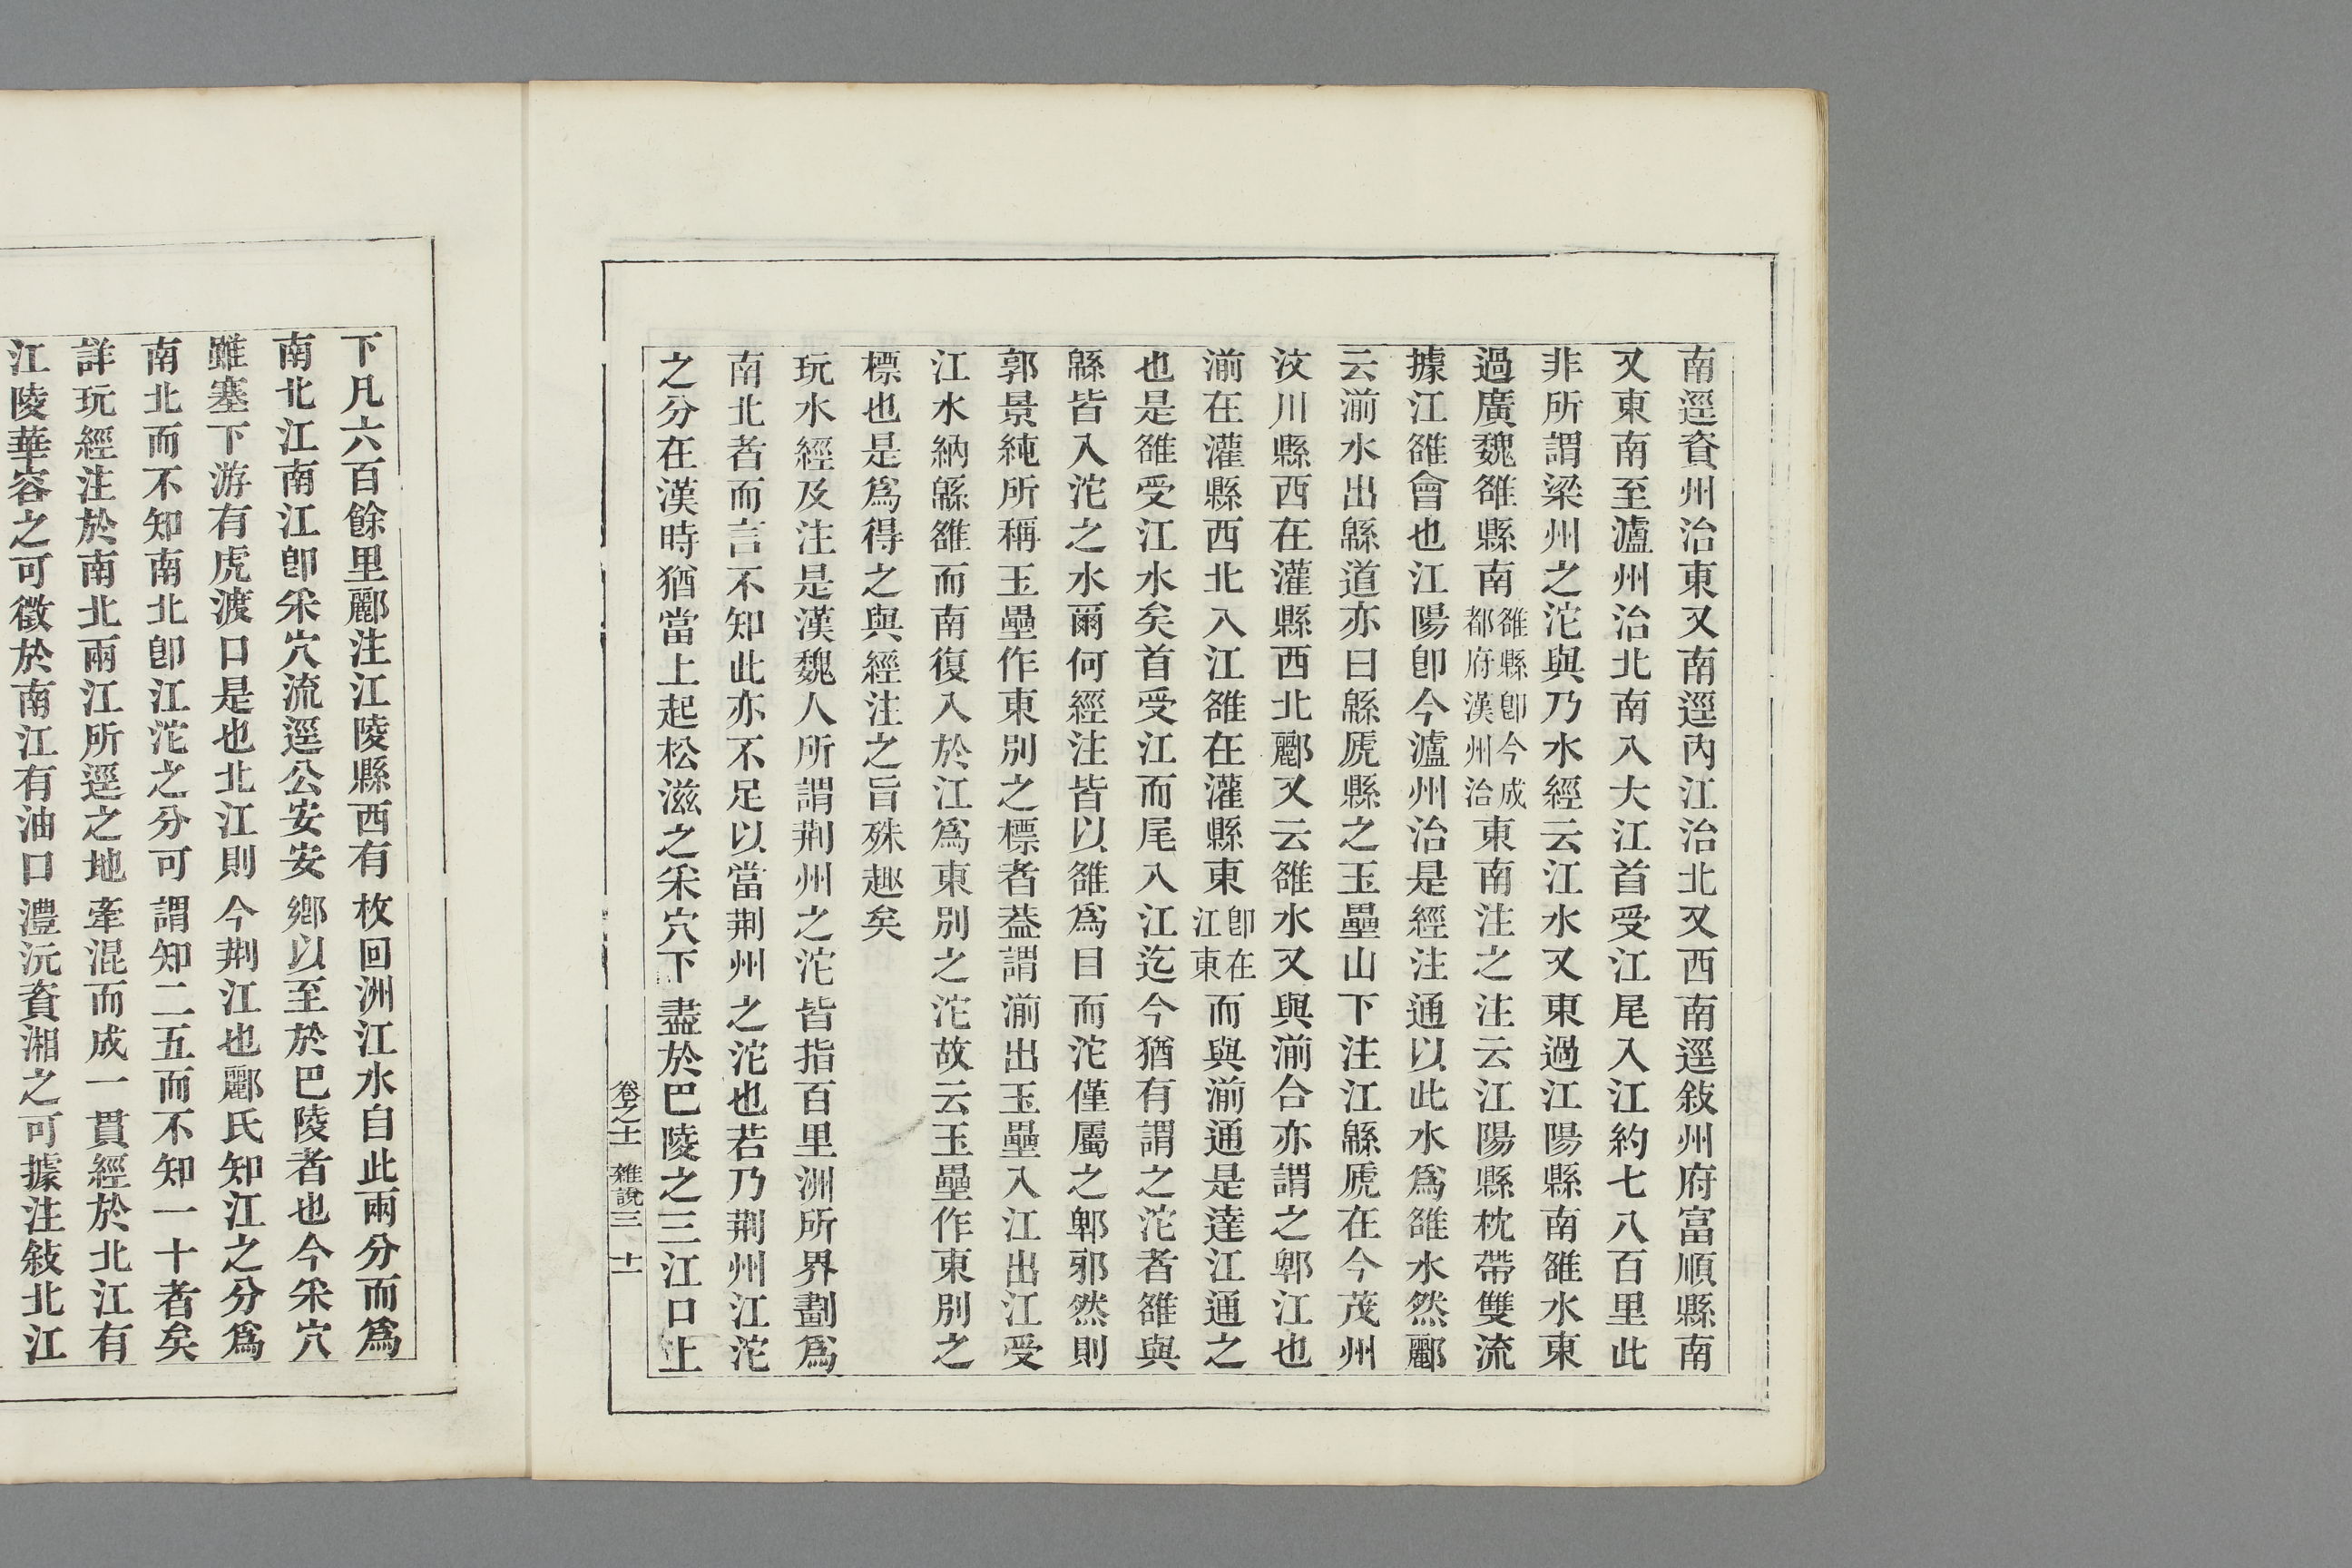 南逕資州治東又南逕內江治北又西南逕敍州府富順縣南
又東南至瀘州治北南入大江首受江尾入江約七八百里此
非所謂梁州之沱與乃水經云江水又東過江陽縣南雒水東
過廣魏雒縣南雒縣卽今成都府漢州治東南注之注云江陽縣枕帶雙流
據江雒會也江陽卽今瀘州治是經注通以此水爲雒水然酈
云湔水出緜道亦曰緜虒縣之玉壘山下注江緜虒在今茂州
汶川縣西在灌縣西北酈又云雒水又與湔合亦謂之郫江也
湔在灌縣西北入江雒在灌縣東卽在江東而與湔通是達江通之
也是雒受江水矣首受江而尾入江迄今猶有謂之沱者雒與
緜皆入沱之水爾何經注皆以雒爲目而沱僅屬之郫邪然則
郭景純所稱玉壘作東別之標者葢謂湔出玉壘入江出江受
江水納緜雒而南復入於江爲東別之沱故云玉壘作東別之
標也是爲得之與經注之旨殊趣矣
玩水經及注是漢魏人所謂荆州之沱皆指百里洲所界劃爲
南北者而言不知此亦不足以當荆州之沱也若乃荆州江沱
之分在漢時猶當上起松滋之采穴下盡於巴陵之三江口上
卷之十一 雜說三 十一
下凡六百餘里酈注江陵縣西有枚回洲江水自此兩分而爲
南北江南江卽采穴流逕公安安鄉以至於巴陵者也今采穴
雖塞下游有虎渡口是也北江則今荆江也酈氏知江之分爲
南北而不知南北卽江沱之分可謂知二五而不知一十者矣
詳玩經注於南北兩江所逕之地牽混而成一貫經於北江有
江陵華容之可徵於南江有油口澧沅資湘之可據注敍北江